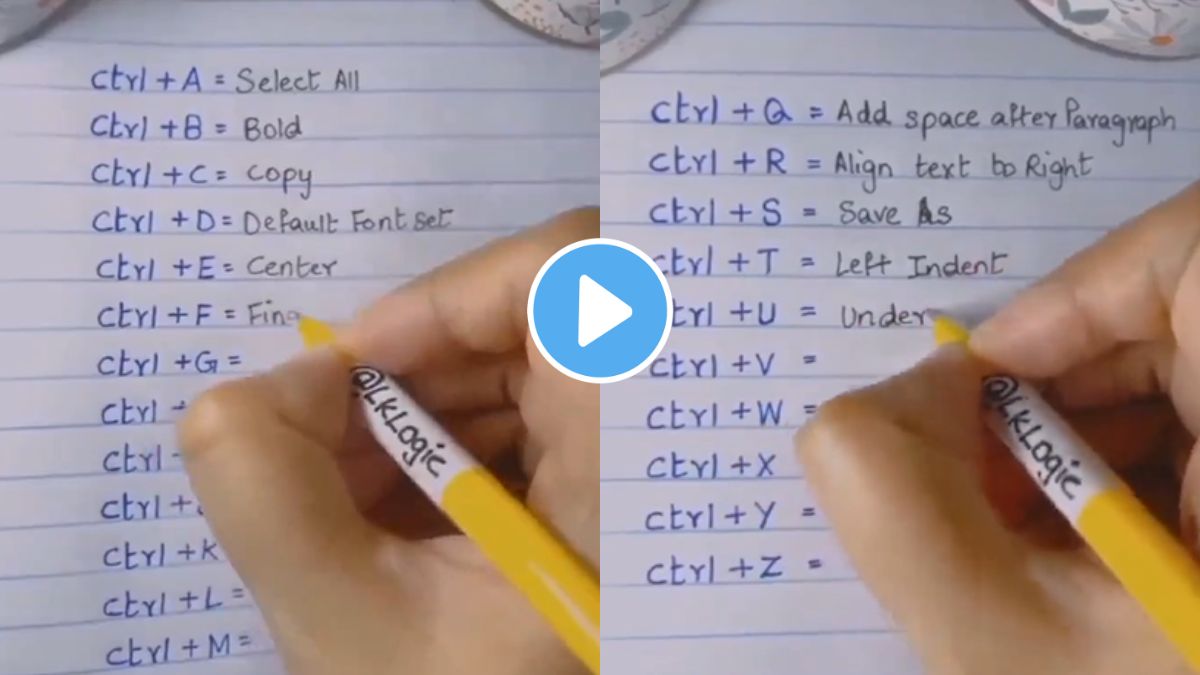 Ctrl + A = Select All
Ctrl + B = Bold
Ctrl + C = Copy
Ctrl + D = Default Font set
Ctrl + E = Center
Ctrl + F = Fin
Ctrl + G =
Ctrl +
Ctrl
Ctrl +
Ctrl + K
Ctrl + L =
Ctrl + M =
@LKLogic
Ctrl + Q = Add space after Paragraph
Ctrl + R = Align text to Right
Ctrl + S = Save As
Ctrl + T = Left Indent
Ctrl + U = Under
Ctrl + V =
Ctrl + W =
Ctrl + X
Ctrl + Y =
Ctrl + Z =
@LKLogic